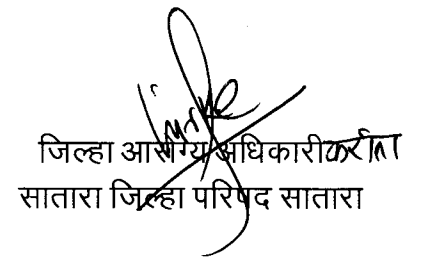 जिल्हा आरोग्य अधिकारी करीता
सातारा जिल्हा परिषद सातारा